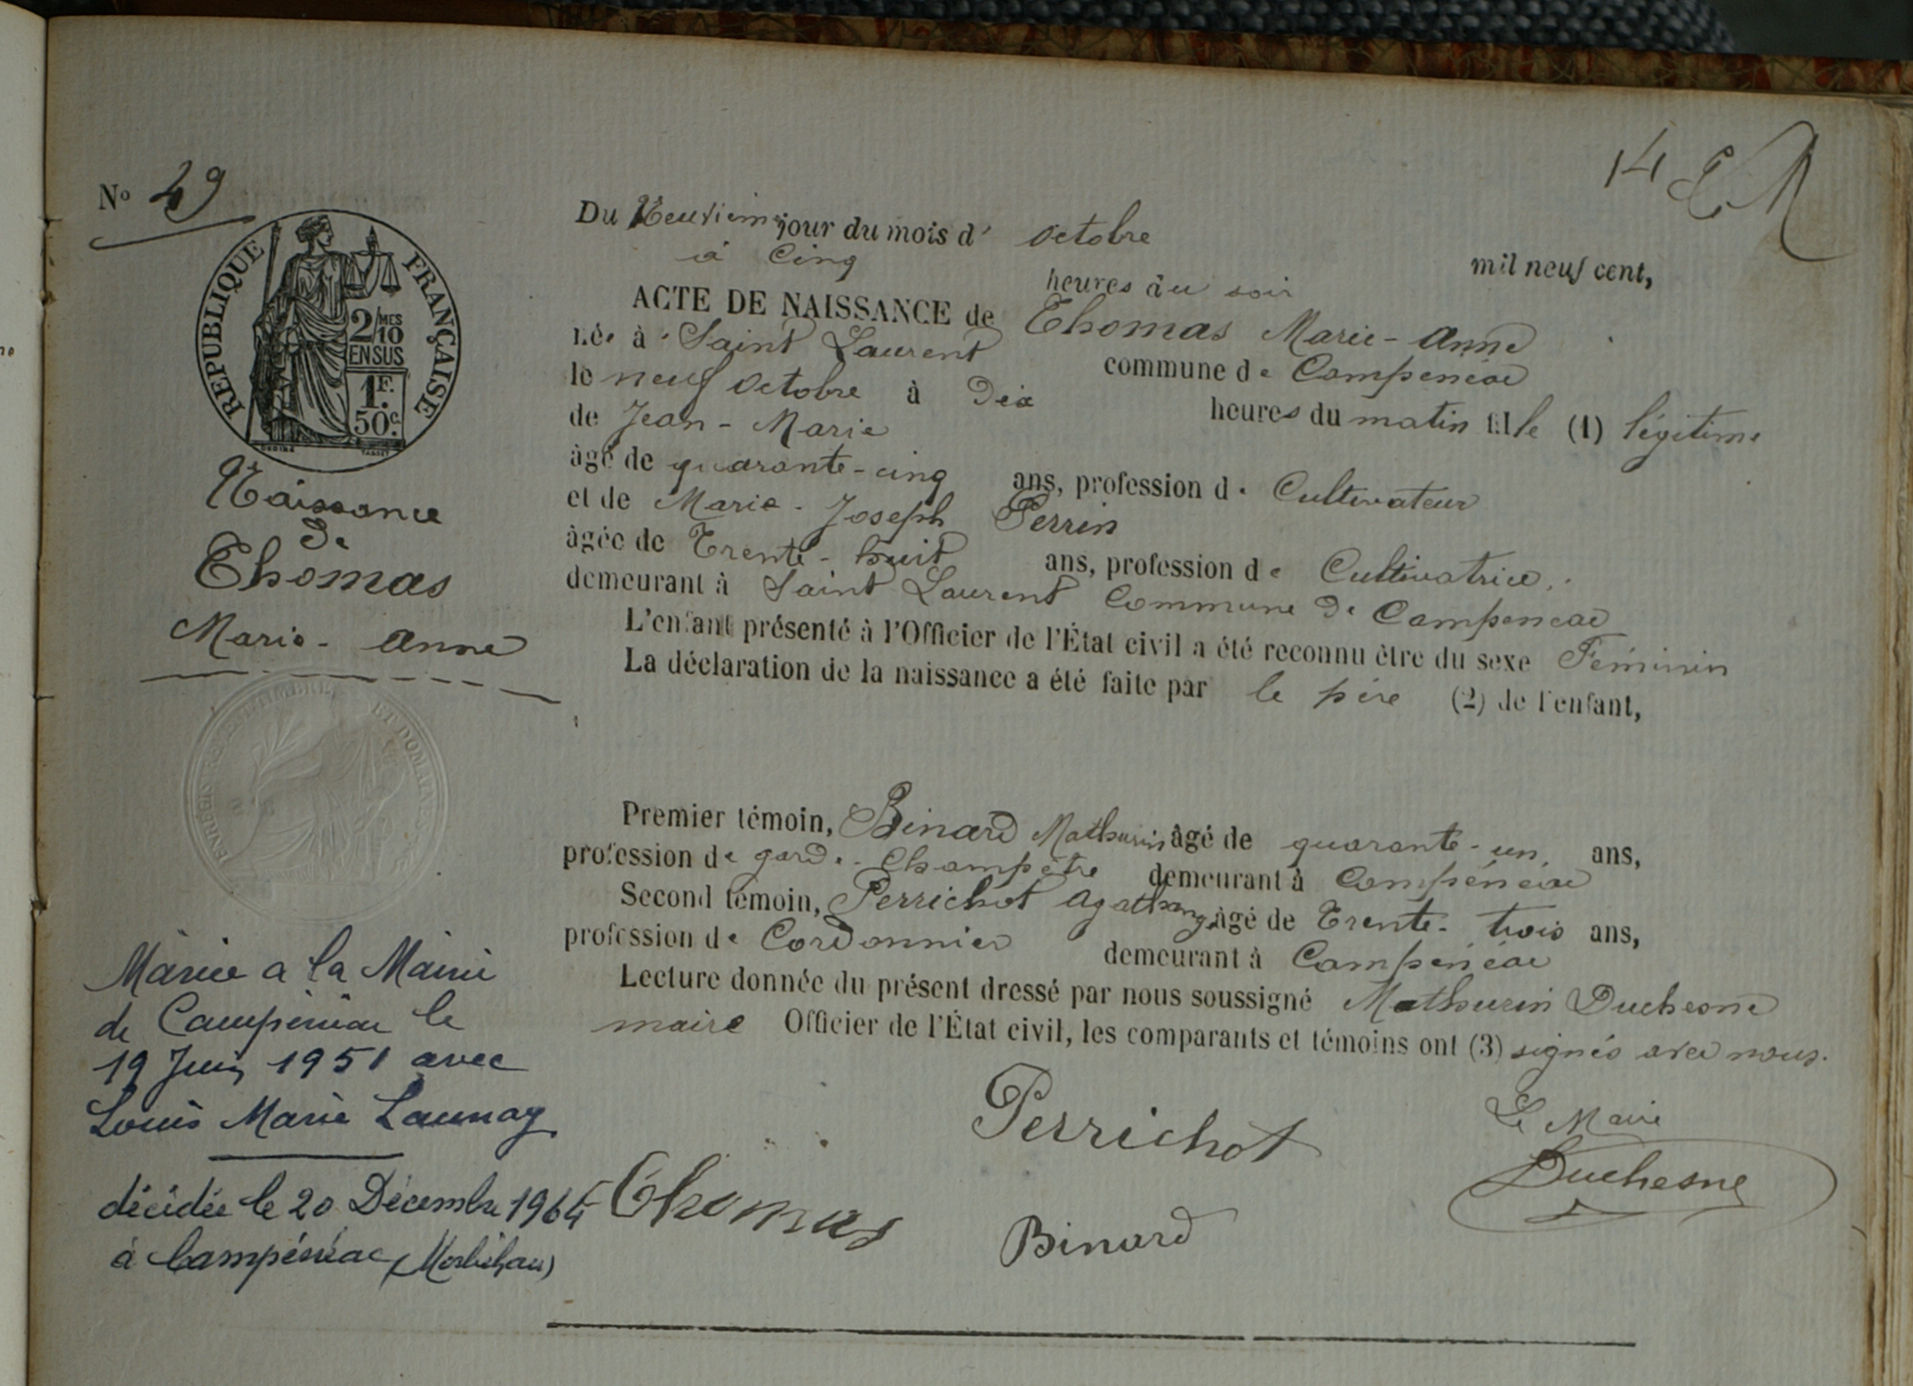 14
N° 49
RÉPUBLIQUE FRANÇAISE
2/10 MES
EN SUS
1 F.
50 c.
Naissance
de
Thomas
Marie - Anne
Mariée a la Mairie
de Campénéac le
19 Juin 1951 avec
Louis Marie Launay
décédée le 20 Décembre 1964
à Campénéac (Morbihan)
Du Neuvième jour du mois d' octobre mil neuf cent,
à Cinq heures du soir
ACTE DE NAISSANCE de Thomas Marie - Anne
née à Saint Laurent commune de Campeneac
le neuf octobre à Dix heures du matin fille (1) légitime
de Jean - Marie
âgé de quarante - cinq ans, profession de Cultivateur
et de Marie - Joseph Perrin
âgée de Trente - huit ans, profession de Cultivatrice
demeurant à Saint Laurent Commune de Campeneac
L'enfant présenté à l'Officier de l'État civil a été reconnu être du sexe Féminin
La déclaration de la naissance a été faite par le père (2) de l'enfant,
Premier témoin, Binard Mathurin âgé de quarante - un ans,
profession de garde - Champêtre demeurant à Campénéac
Second témoin, Perrichot Agathange âgé de Trente - trois ans,
profession de Cordonnier demeurant à Campénéac
Lecture donnée du présent dressé par nous soussigné Mathurin Duchesne
maire Officier de l'État civil, les comparants et témoins ont (3) signés avec nous.
Perrichot
Le Maire
Duchesne
Thomas
Binard